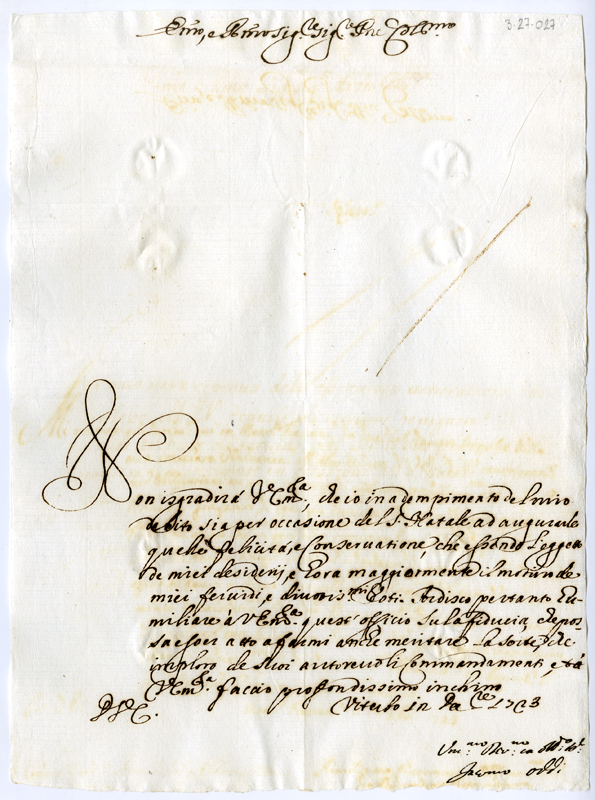 3-27-027
Emo, e Rmo Sig.re Sig.re Pne Colmo
Non isgradirà V.Em.za, che io in adempimento del mio
debito sia per occasione del S. Natale ad augurarle
quelle felicità, e Conservatione, che essendo l'oggetto
de miei desiderij, è hora maggiormente il motivo de
miei feruidi, e diuotis.mi voti. Ardisco per tanto hu-
miliare à V.Em.za quest'officio su la fiducia, che pos-
sa esser atto a farmi anche meritare la sorte, che
imploro de suoi autoreuoli Commandamenti, e à
V.Em.za faccio profondissimo inchino
Viterbo in 1723
Giacomo Oddi